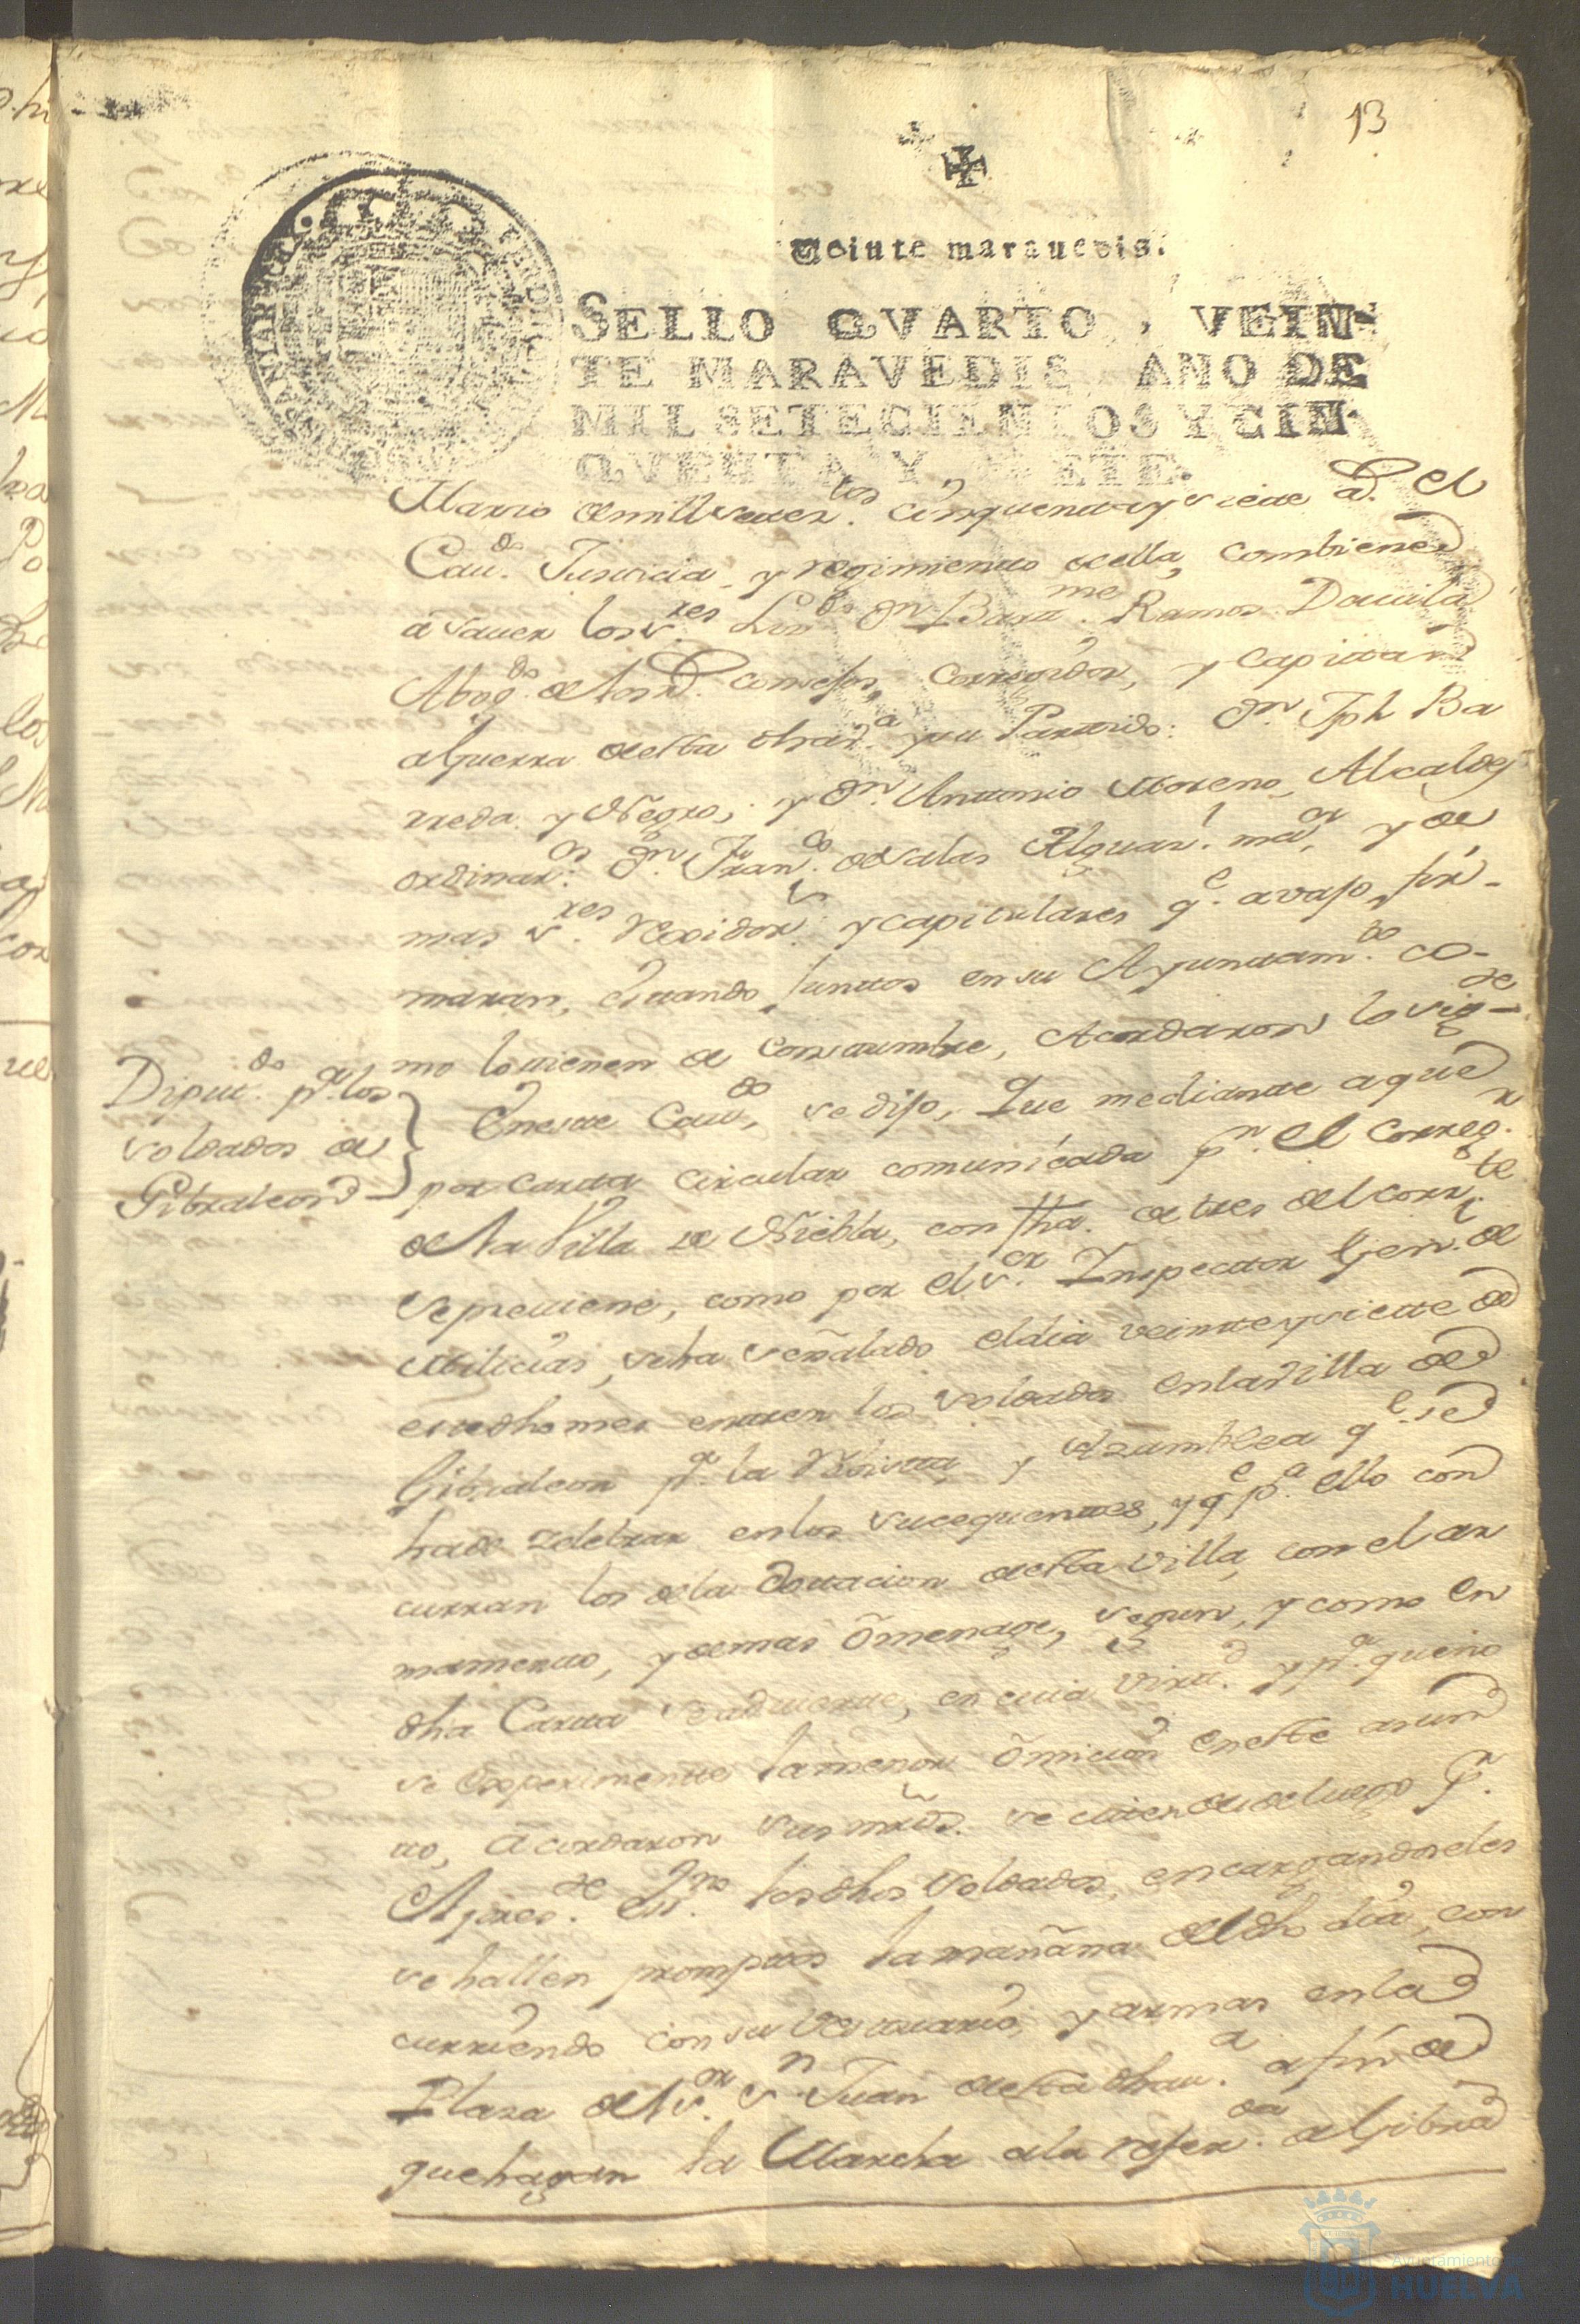 13
Veinte maravedis.
SELLO QVARTO, VEIN-
TE MARAVEDIS, AÑO DE
MIL SETECIENTOS Y CIN-
QVENTA Y SIETE.
Marzo de mill setez.tos cinquenta y siete a.s el
Cau.do Justicia, y regimiento de ella, combiene
a saver los s.res Liz.do Dn. Bart.me Ramos Dauila
Abog.do de los R.s Consejos, Corregidor, y Capitan
a Guerra de esta dha v.a y su Partido: Dn. Jph Ba
rreda y Negro, y Dn. Antonio Moreno, Alcaldes
ordinar.os Dn. Fran.co de Salas Alguaz.l ma.or y de
mas s.res rexidor.s y capitulares q.e avajo fir-
maran, estando juntos en su Ayuntam.to co-
mo lo tienen de costumbre, acordaron lo sig.te
Diput.do p.a los
soldados a
Gibraleon
En este Cau.do, se dijo, Que mediante a que
por carta circular comunicada p.r el Correg.r
de la Villa de Niebla, con fha. de tres del corr.te
se preuiene, como por el s.or Inspector Gen.l de
Milicias, se ha señalado el dia veinte y siete de
este dho mes entren los soldados en la villa de
Gibraleon p.a la Revista y Azamblea q.e se
ha de zelebrar en los sucequentes, y q.e p.a ello con
curran los de la dotacion de esta villa, con el ar
mamento, y demas omenage, segun, y como en
dha Carta se aduierte, en cuia virtu.d y p.a que no
se experimente la menor omicion en este asun
to, acordaron sus mrds. se citen desde luego p.r
el pres.te Ess.no los dhos soldados, encargandoseles
se hallen promptos la mañana del dho dia, con
curriendo con su vestuario, y armas en la
Plaza del s.or S.n Juan de esta dha v.a a fin de
que hagan la Marcha a la refer.da de Gibra
Ayuntamiento de
HUELVA